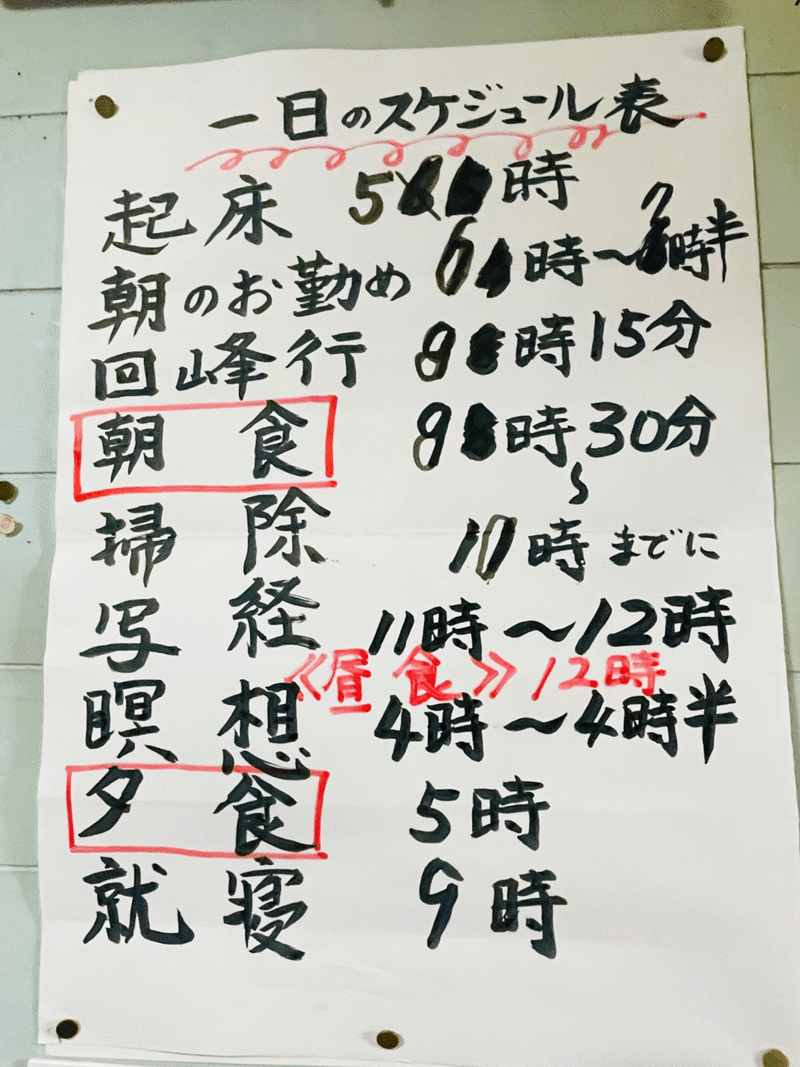 一日のスケジュール表
起床 5時
朝のお勤め 6時〜7時半
回峰行 8時15分
朝食 8時30分
〜
掃除 10時までに
写経 11時〜12時
《昼食》12時
瞑想 4時〜4時半
夕食 5時
就寝 9時